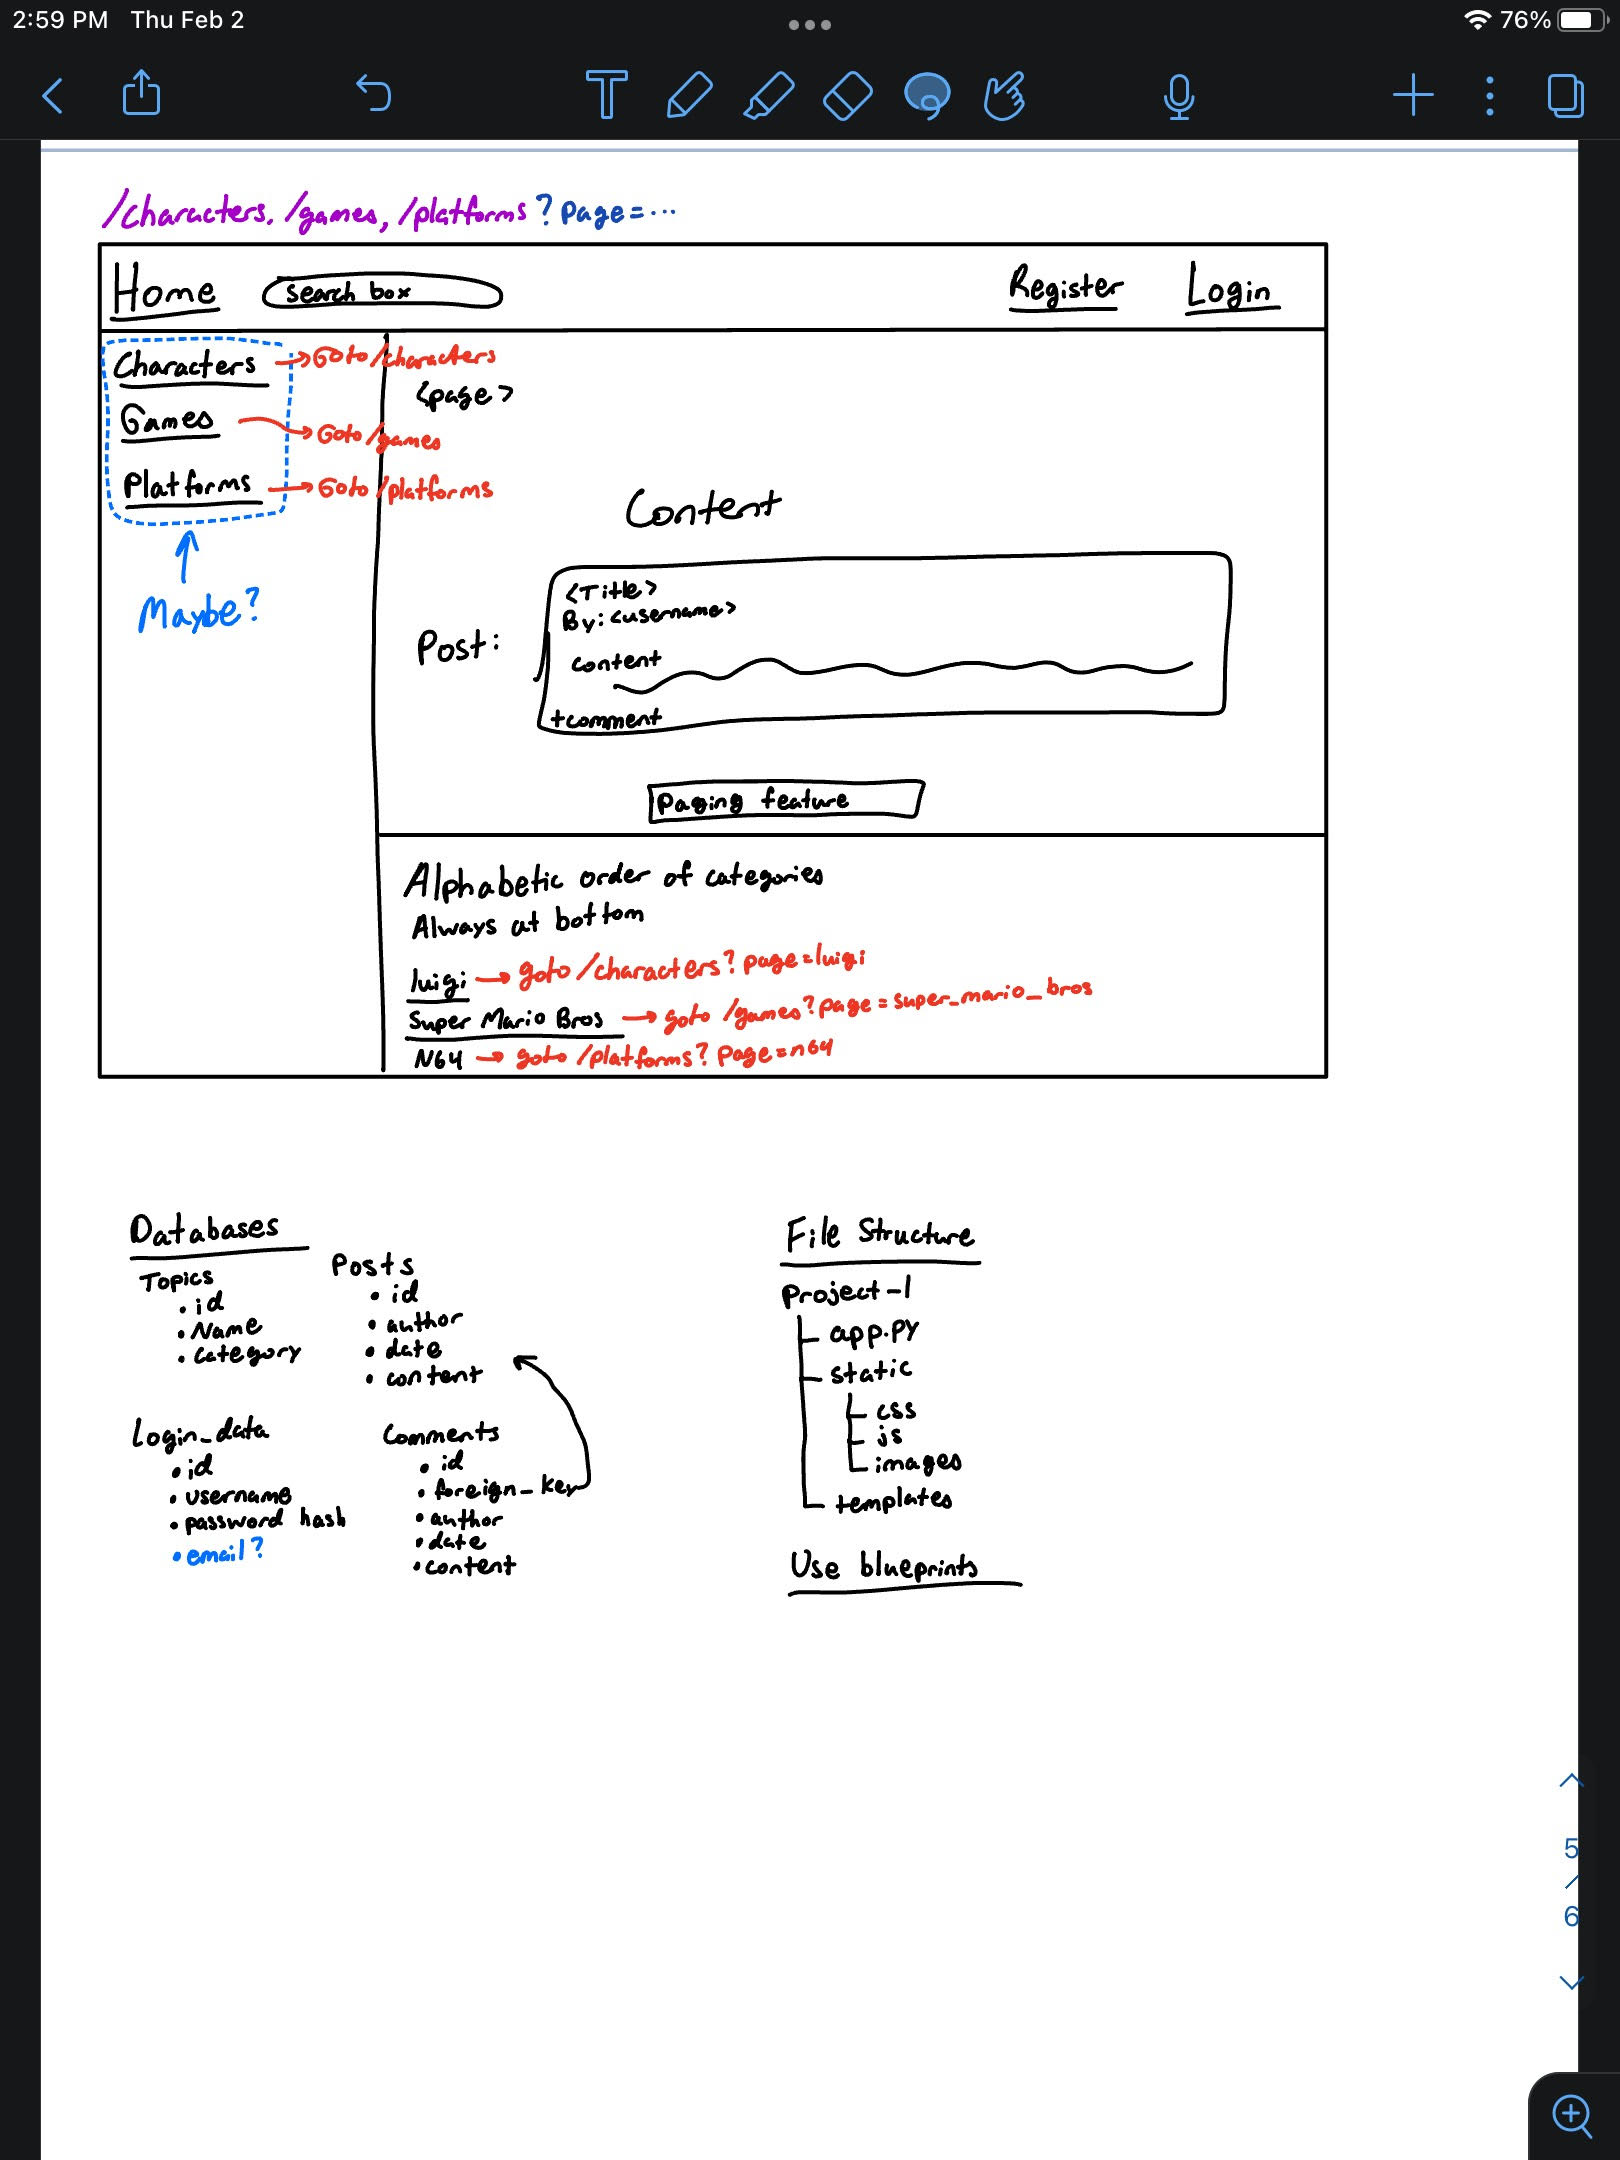 2:59 PM Thu Feb 2
76%
T
/characters, /games, /platforms ? page = ...
Home search box Register Login
Characters → Goto /characters
<page>
Games → Goto /games
Platforms → Goto /platforms
Content
Maybe?
<Title>
By: <username>
Post:
content
+comment
Paging feature
Alphabetic order of categories
Always at bottom
luigi → goto /characters? page=luigi
Super Mario Bros → goto /games? page = super_mario_bros
N64 → goto /platforms? Page=n64
Databases
Topics
• id
• Name
• category
Posts
• id
• author
• date
• content
Login_data
• id
• username
• password hash
• email?
Comments
• id
• foreign_key
• author
• date
• content
File Structure
Project-1
app.py
static
css
js
images
templates
Use blueprints
5
/
6